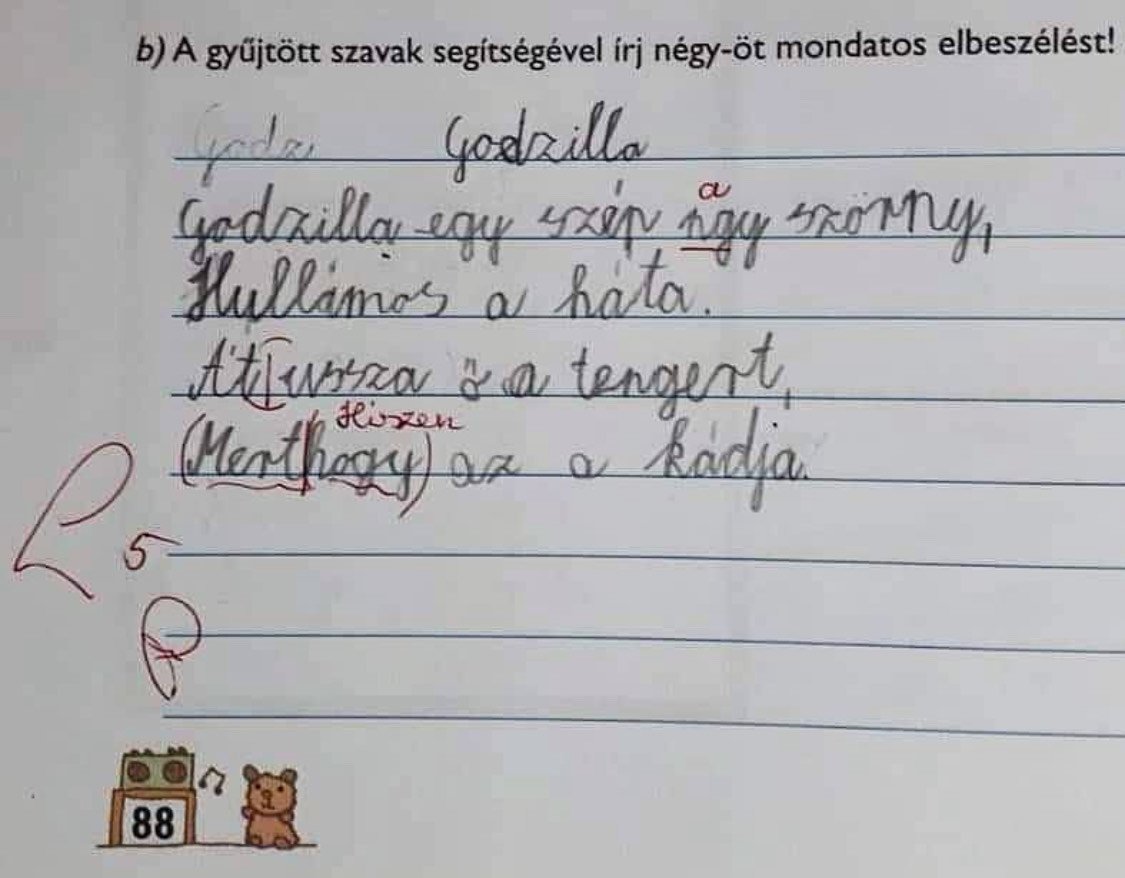 b) A gyűjtött szavak segítségével írj négy-öt mondatos elbeszélést!
Godz Godzilla
a
Godzilla egy szép ngy szörny,
Hullámos a háta.
Átussza ő a tengert,
Hiszen
(Merthogy) az a kádja.
5
88